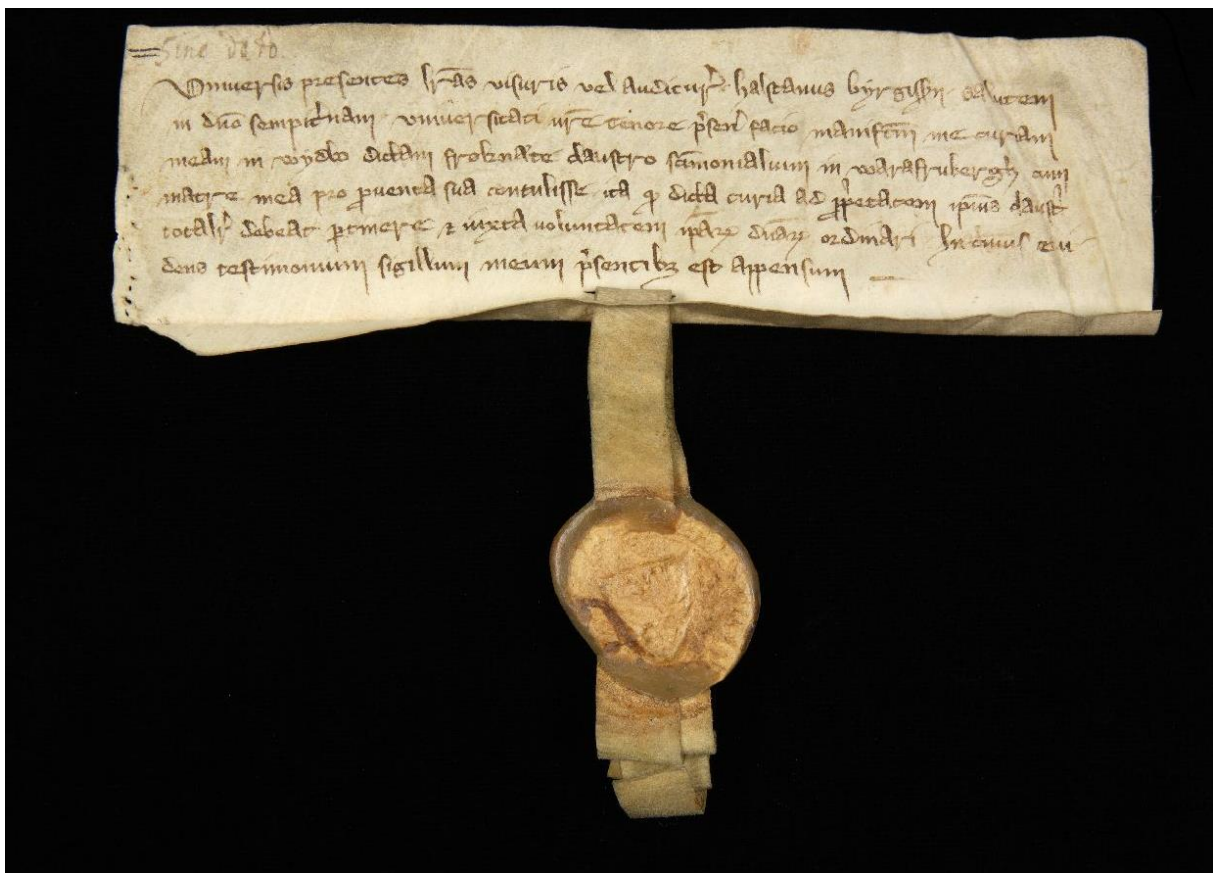 Sine dato.
Universis presentes lr̄as visuris vel auditur̉ halstanus byrgiss̄n salutem
in dn̄o sempit̉nam universitati vr̄e tenore p̉sen̄ facio manifestū me curiam
meam in wydbo dictam frøknate claustro sc̄imonialium in warafrubergh cum
matre mea pro p̱venta sua contulisse ita ꝙ dicta curia ad p̱petatem ip̄ius claust̉
total̉r debeat p̱tinere ⁊ iuxta voluntatem ip̄arꝝ dn̄arꝝ ordinari In cuius evi
dens testimonium sigillum meum p̉sentibꝫ est appensum